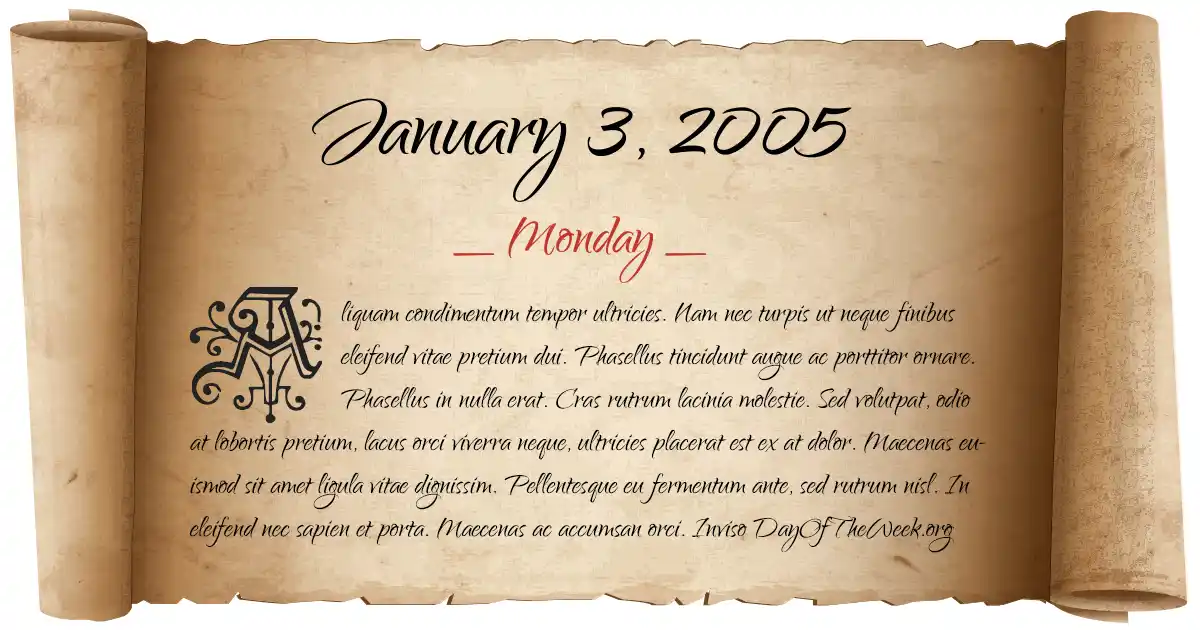 January 3, 2005
__ Monday __
Aliquam condimentum tempor ultricies. Nam nec turpis ut neque finibus
eleifend vitae pretium dui. Phasellus tincidunt augue ac porttitor ornare.
Phasellus in nulla erat. Cras rutrum lacinia molestie. Sed volutpat, odio
at lobortis pretium, lacus orci viverra neque, ultricies placerat est ex at dolor. Maecenas eu-
ismod sit amet ligula vitae dignissim. Pellentesque eu fermentum ante, sed rutrum nisl. In
eleifend nec sapien et porta. Maecenas ac accumsan orci. Inviso DayOfTheWeek.org